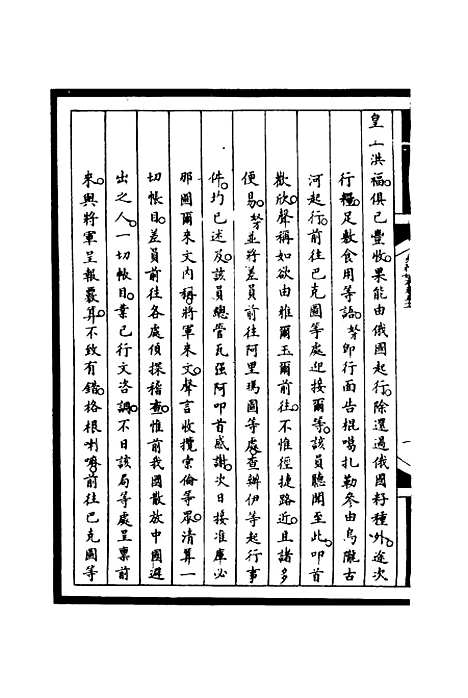 皇上洪福。俱已豐收。果能由俄國起行。除還過俄國籽種外。途次
行糧。足敷食用等語。弩卽行面告棍噶扎勒參由烏隴古
河起行。前往巴克圖等處迎接爾等。該員聽聞至此。叩首
歡欣。聲稱如欲由雅爾玉爾前往。不惟徑捷路近。且諸多
便易。弩並將差員前往阿里瑪圖等處。查辦伊等起行事
件。均已述及。該員總管瓦强阿叩首感謝。次日接准庫必
那圖爾來文內稱。將軍來文。聲言收攬索倫等眾。清算一
切帳目。差員前往各處偵探稽查。惟前我國散放中國逃
出之人。一切帳目。業已行文咨調。不日該局等處呈稟前
來。與將軍呈報覈算。不致有錯。格根喇嘛前往巴克圖等